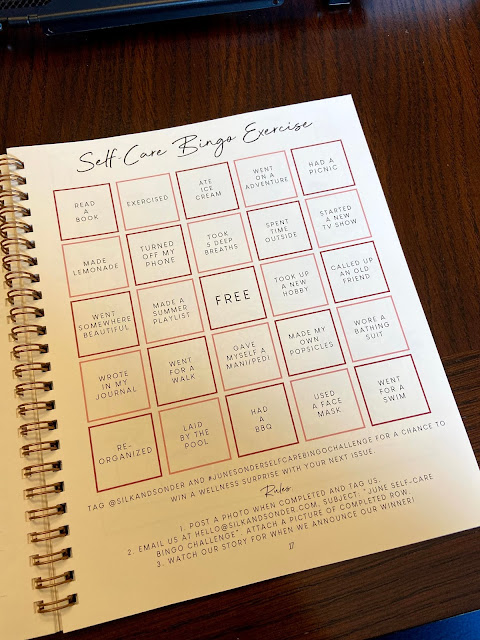 Self-Care Bingo Exercise
READ
A
BOOK
EXERCISED
ATE
ICE
CREAM
WENT
ON A
ADVENTURE
HAD A
PICNIC
MADE
LEMONADE
TURNED
OFF MY
PHONE
TOOK
5 DEEP
BREATHS
SPENT
TIME
OUTSIDE
STARTED
A NEW
TV SHOW
WENT
SOMEWHERE
BEAUTIFUL
MADE A
SUMMER
PLAYLIST
FREE
TOOK UP
A NEW
HOBBY
CALLED UP
AN OLD
FRIEND
WROTE
IN MY
JOURNAL
WENT
FOR A
WALK
GAVE
MYSELF A
MANI/PEDI
MADE MY
OWN
POPSICLES
WORE A
BATHING
SUIT
RE-
ORGANIZED
LAID
BY THE
POOL
HAD
A
BBQ
USED
A FACE
MASK
WENT
FOR A
SWIM
TAG @SILKANDSONDER AND #JUNESONDERSELFCAREBINGOCHALLENGE FOR A CHANCE TO
WIN A WELLNESS SURPRISE WITH YOUR NEXT ISSUE.
Rules
1. POST A PHOTO WHEN COMPLETED AND TAG US.
2. EMAIL US AT HELLO@SILKANDSONDER.COM, SUBJECT: "JUNE SELF-CARE
BINGO CHALLENGE". ATTACH A PICTURE OF COMPLETED ROW.
3. WATCH OUR STORY FOR WHEN WE ANNOUNCE OUR WINNER!
17